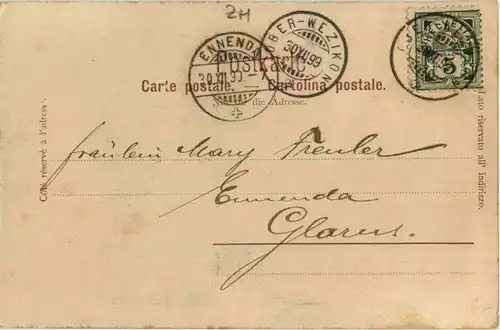 ZH
ENNENDA
30.XII.99.-7
OBER-WEZIKON
30.XII.99
5
Postkarte
Carte postale. — Cartolina postale.
die Adresse.
Côté réservé à l'adresse.
Lato riservato all' indirizzo.
Fräulein Mary Freuler
Ennenda
Glarus.